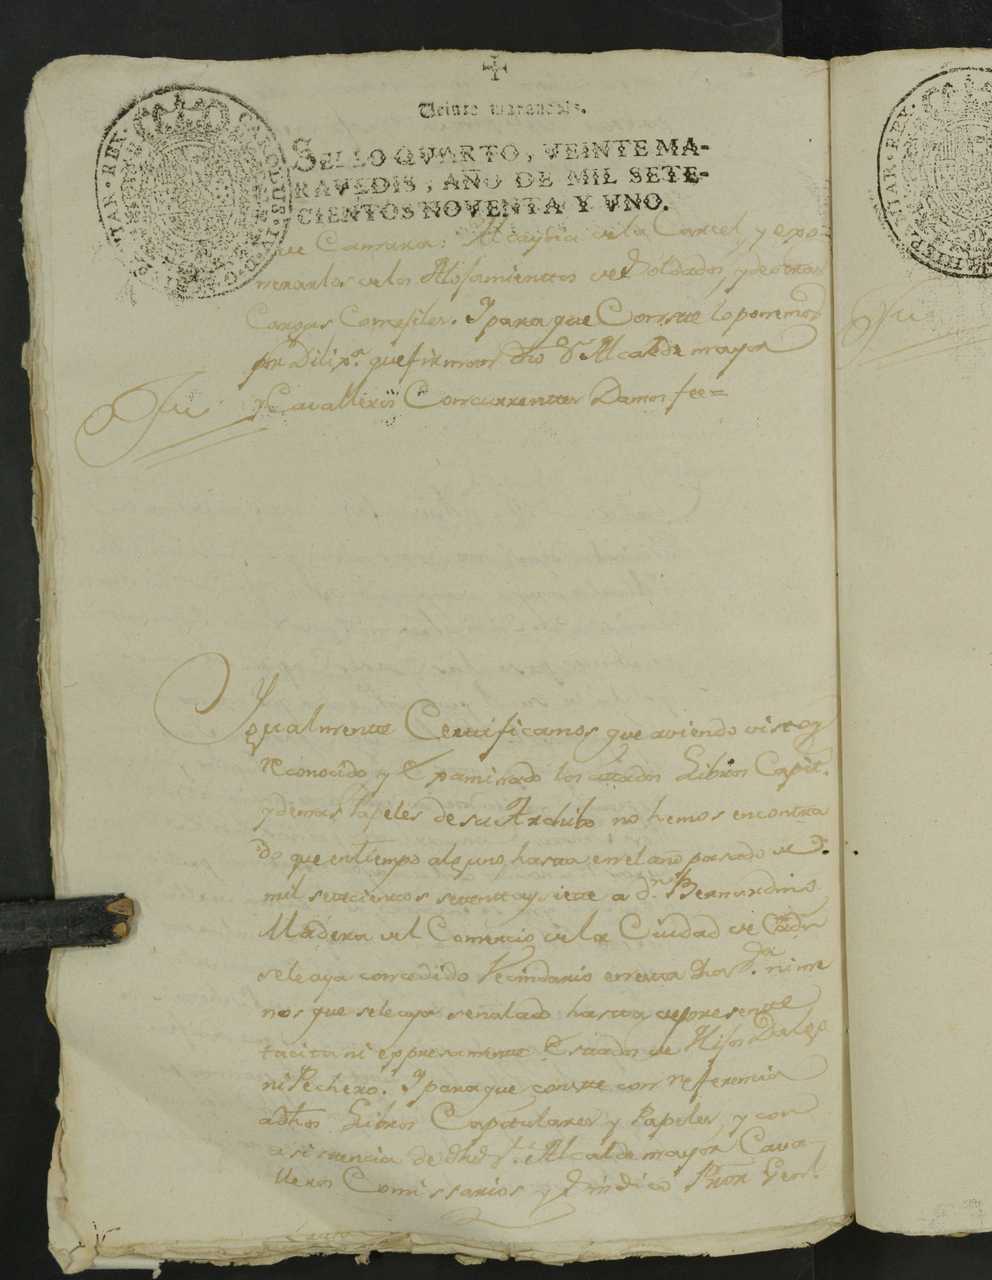 Veinte maravedis.
SELLO QVARTO, VEINTE MA-
RAVEDIS, AÑO DE MIL SETE-
CIENTOS NOVENTA Y VNO.
CAROLUS IV D G HISPANIAR REX
de Camara: Alcaydia de la Carcel, y expo=
nerarlos de los Alojamienttos de Soldados, y de otras
Cargas Consejiles. Y para que Conste lo ponemos
por Dilixª. que firmaron dho Sr. Alcalde mayor
y Cavalleros Concurrenttes Damos fee=
Fee
Ygualmente Certificamos que aviendo visto y
reconocido y Expaminado los citados Libros Capit.
y demas Papeles de su Archibo no hemos encontra
do que en tiempo alguno, hasta en el año pasado de
mil setecientos settenta y siete a Dn. Bernardino
Madera del Comercio de la Ciudad de
se le aya concedido Vecindario en esta dha ni me
nos que se le aya señalado hasta de presente
tacita ni expresamente Estados de Hijos Dalgo
ni Pechero. Y para que conste con referencia
a dhos Libros Capitulares y Papeles, y con
asistencia de dho Sr. Alcalde mayor Cava
lleros Comissarios y Sindico Pror. Genl.